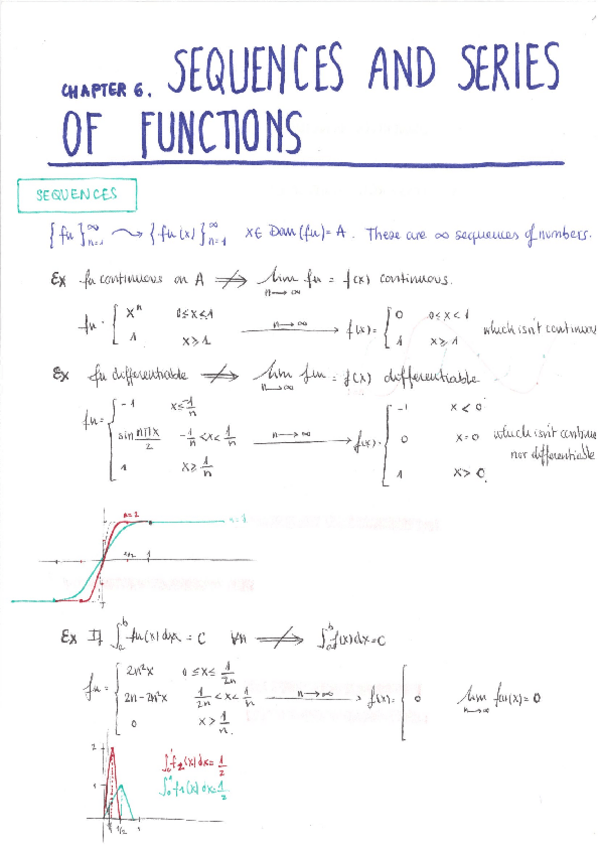 CHAPTER 6. SEQUENCES AND SERIES
OF FUNCTIONS
SEQUENCES
{fn}∞n=1 ⤳ {fn(x)}∞n=1 x∈ Dom(fn)= A. There are ∞ sequences of numbers.
Ex fn continuous on A ⇏ lim n→∞ fn = f(x) continuous.
fn = { x^n 0≤x≤1 n→∞ f(x) = { 0 0≤x<1 which isn't continuous
1 x≥1 1 x≥1
Ex fn differentiable ⇏ lim n→∞ fn = f(x) differentiable
fn = { -1 x≤-1/n n→∞ f(x) = { -1 x<0
sin nπx/2 -1/n<x<1/n 0 x=0 which isn't continue
nor differentiable
1 x≥1/n 1 x>0
n=2
1/2 1
Ex If ∫_a^b fn(x)dx = C ∀n ⇏ ∫_a^b f(x)dx=C
fn = { 2n²x 0≤x≤1/2n
2n-2n²x 1/2n<x<1/n n→∞ f(x) = { 0 lim n→∞ fn(x) = 0
0 x>1/n.
2
∫_0^1 f2(x)dx=1/2
1 ∫_0^1 f1(x)dx=1/2
1/2 1